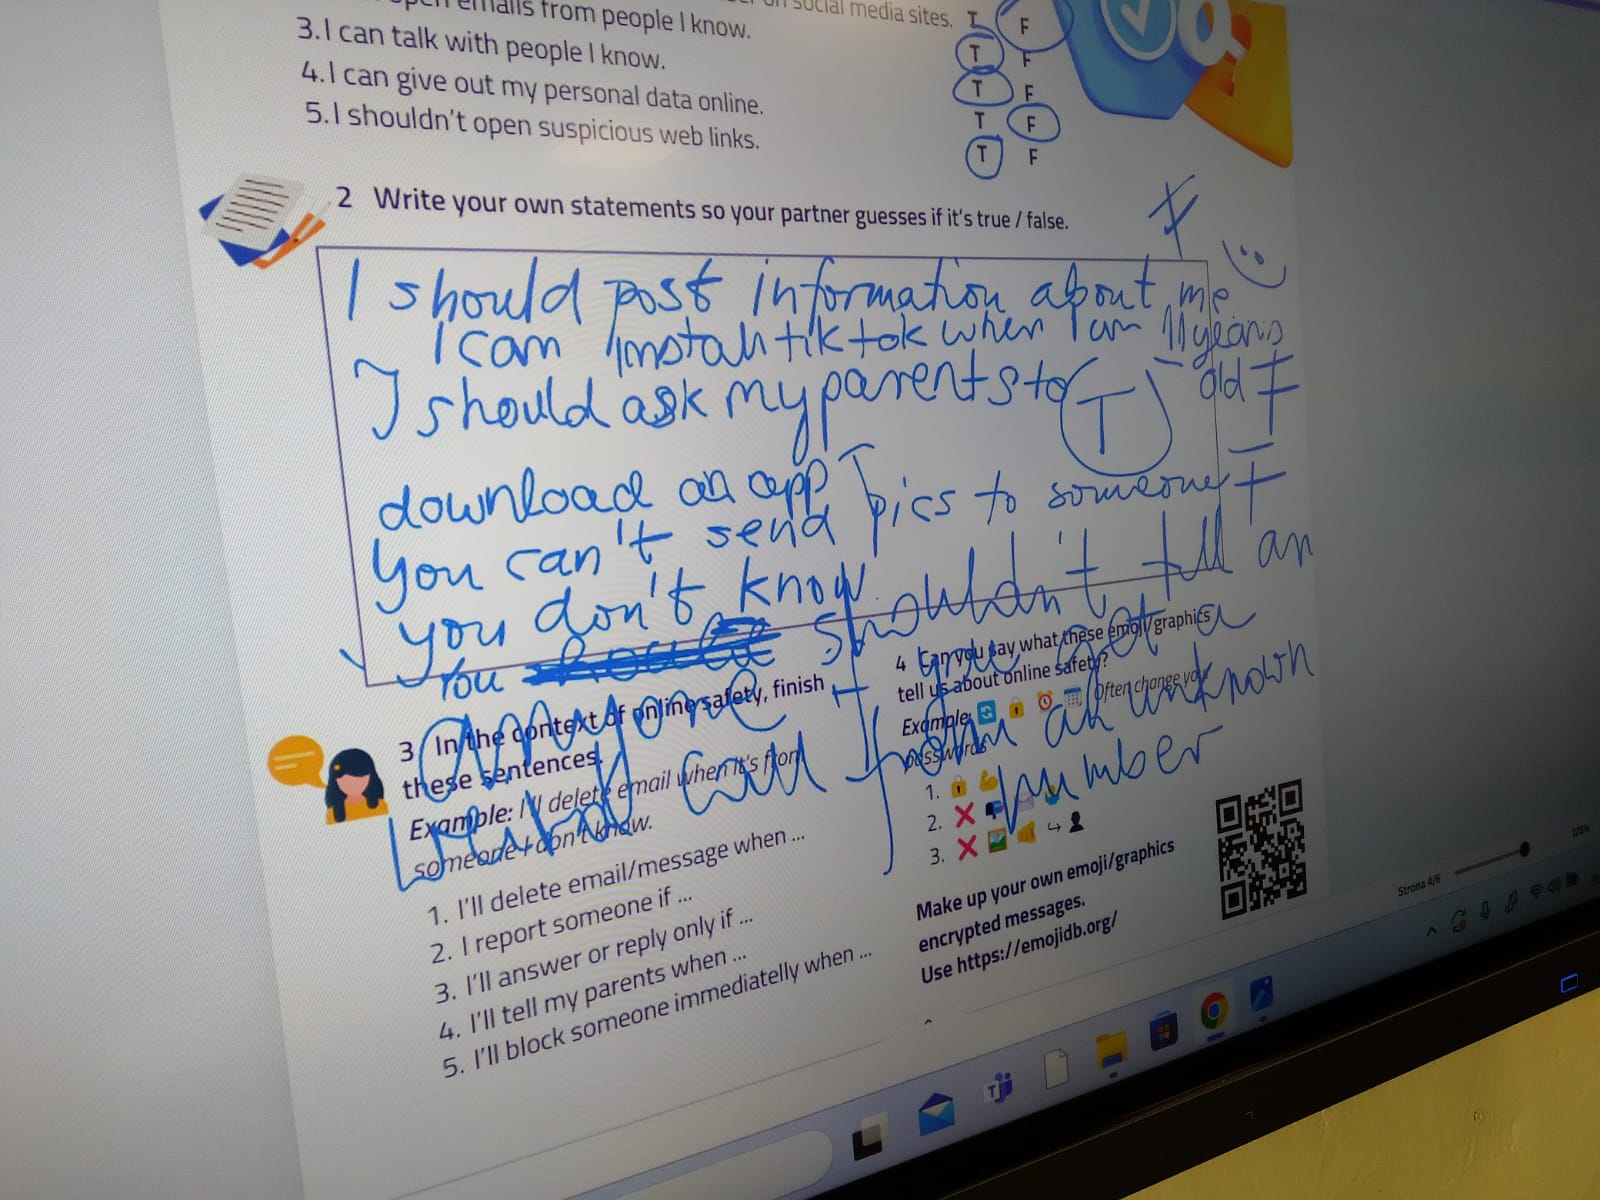 on social media sites. T F
open emails from people I know. T F
3. I can talk with people I know. T F
4. I can give out my personal data online. T F
5. I shouldn't open suspicious web links. T F
2 Write your own statements so your partner guesses if it's true / false.
F
I should post information about me
I can install tiktok when I am 11 years
old F
I should ask my parents to T
download an app T
You can't send pics to someone F
you don't know.
You shouldn't tell an
anyone if you get a
call from an unknown
number
3 In the context of online safety, finish
these sentences.
Example: I'll delete email when it's from
someone I don't know.
1. I'll delete email/message when ...
2. I report someone if ...
3. I'll answer or reply only if ...
4. I'll tell my parents when ...
5. I'll block someone immediatelly when ...
4 Can you say what these emoji/graphics
tell us about online safety?
Example: Often change your
passwords
1.
2.
3.
Make up your own emoji/graphics
encrypted messages.
Use https://emojidb.org/
Strona 4/6
125%